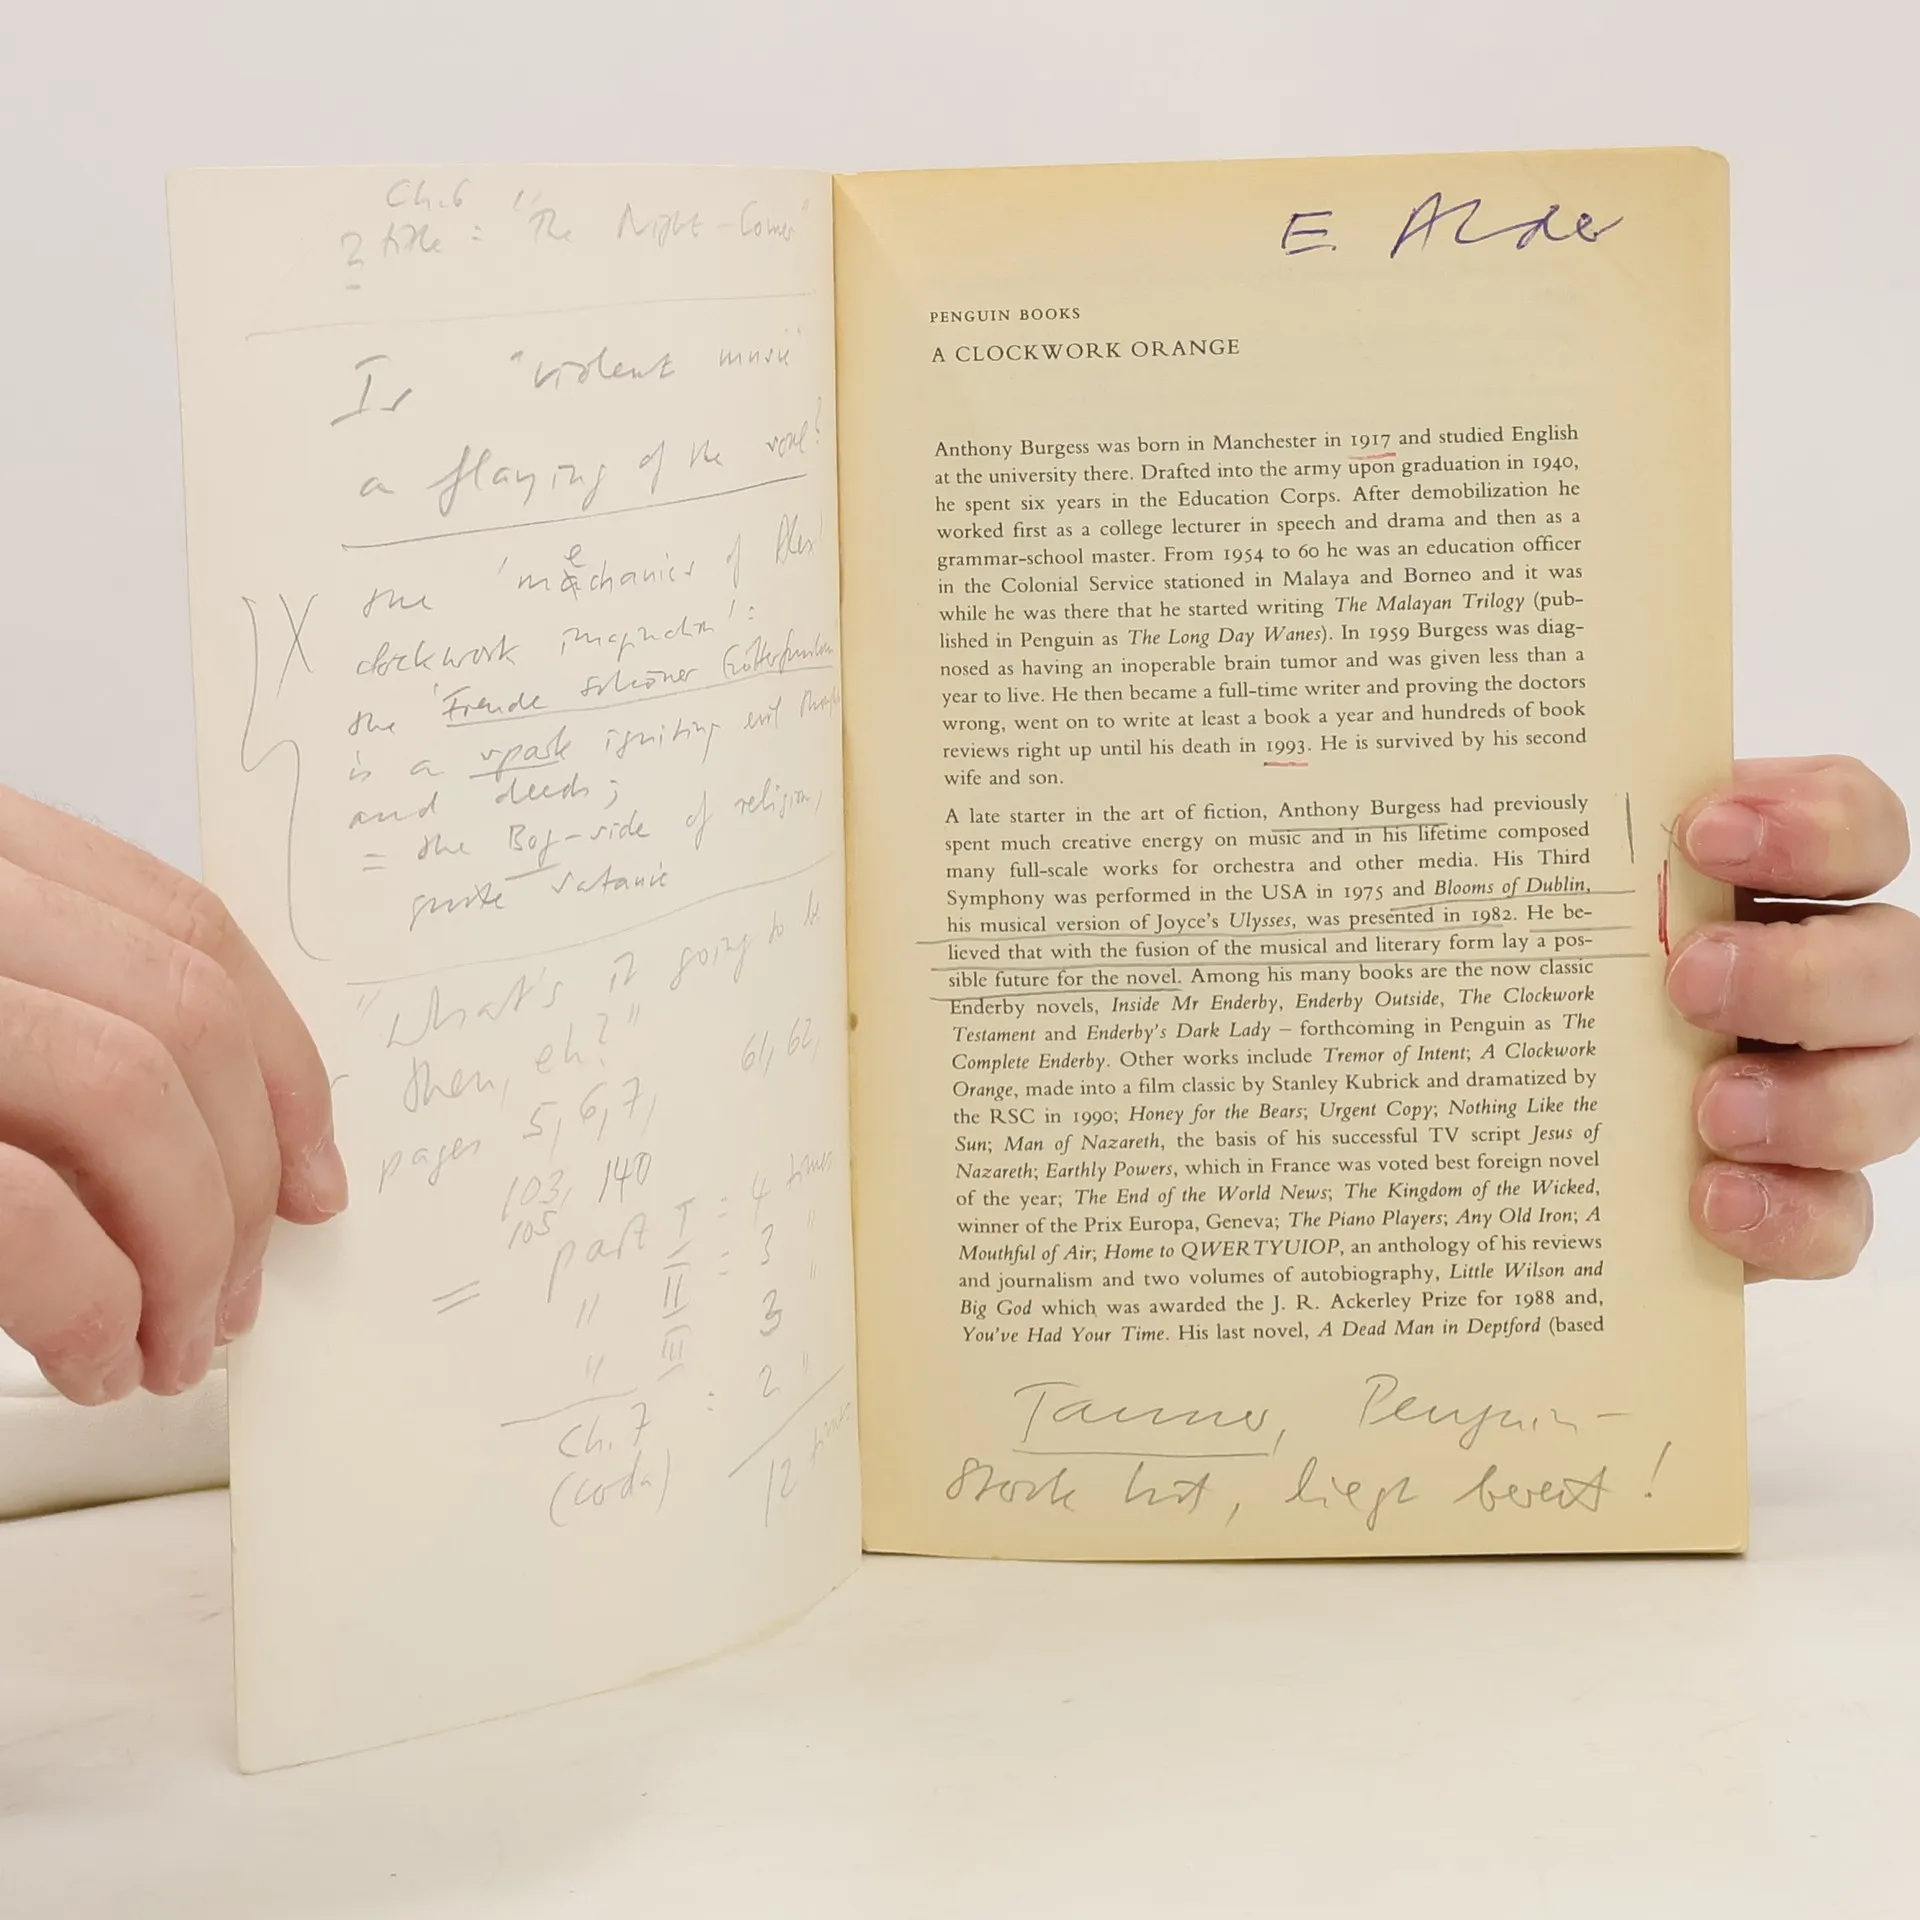 Ch. 6
? title = "The Night-Comer"
Is "violent music"
a flaying of the soul?
the 'mechanics of Alex'
clockwork imagination':
the 'Freude schöner Götterfunken
is a spark igniting evil
and deeds;
= the Bog-side of religion,
quite satanic
"What's it going to be
then, eh?"
pages 5, 6, 7, 61, 62,
103, 140
105
= part I : 4 times
" II : 3 "
" III 3 "
Ch. 7 : 2 "
(coda) 12 times
E. Alder
PENGUIN BOOKS
A CLOCKWORK ORANGE
Anthony Burgess was born in Manchester in 1917 and studied English
at the university there. Drafted into the army upon graduation in 1940,
he spent six years in the Education Corps. After demobilization he
worked first as a college lecturer in speech and drama and then as a
grammar-school master. From 1954 to 60 he was an education officer
in the Colonial Service stationed in Malaya and Borneo and it was
while he was there that he started writing The Malayan Trilogy (pub-
lished in Penguin as The Long Day Wanes). In 1959 Burgess was diag-
nosed as having an inoperable brain tumor and was given less than a
year to live. He then became a full-time writer and proving the doctors
wrong, went on to write at least a book a year and hundreds of book
reviews right up until his death in 1993. He is survived by his second
wife and son.
A late starter in the art of fiction, Anthony Burgess had previously
spent much creative energy on music and in his lifetime composed
many full-scale works for orchestra and other media. His Third
Symphony was performed in the USA in 1975 and Blooms of Dublin,
his musical version of Joyce's Ulysses, was presented in 1982. He be-
lieved that with the fusion of the musical and literary form lay a pos-
sible future for the novel. Among his many books are the now classic
Enderby novels, Inside Mr Enderby, Enderby Outside, The Clockwork
Testament and Enderby's Dark Lady – forthcoming in Penguin as The
Complete Enderby. Other works include Tremor of Intent; A Clockwork
Orange, made into a film classic by Stanley Kubrick and dramatized by
the RSC in 1990; Honey for the Bears; Urgent Copy; Nothing Like the
Sun; Man of Nazareth, the basis of his successful TV script Jesus of
Nazareth; Earthly Powers, which in France was voted best foreign novel
of the year; The End of the World News; The Kingdom of the Wicked,
winner of the Prix Europa, Geneva; The Piano Players; Any Old Iron; A
Mouthful of Air; Home to QWERTYUIOP, an anthology of his reviews
and journalism and two volumes of autobiography, Little Wilson and
Big God which was awarded the J. R. Ackerley Prize for 1988 and,
You've Had Your Time. His last novel, A Dead Man in Deptford (based
Tanner, Penguin-
stock hat, liegt bereit!